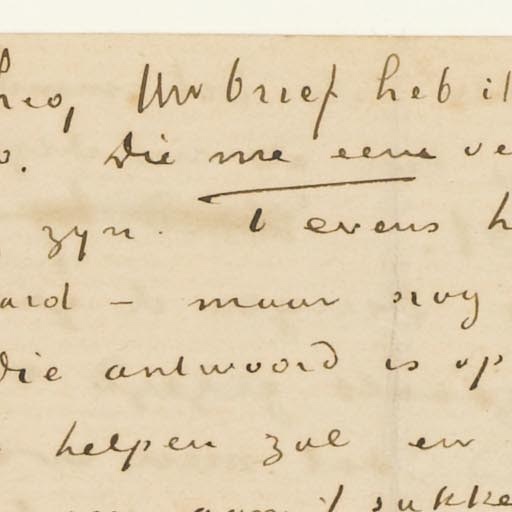 heo, Uw brief heb i
o. Die me eene ve
zyn. Tevens h
ard – maar nog
die antwoord is op
helpen zal en
aan 't sukke